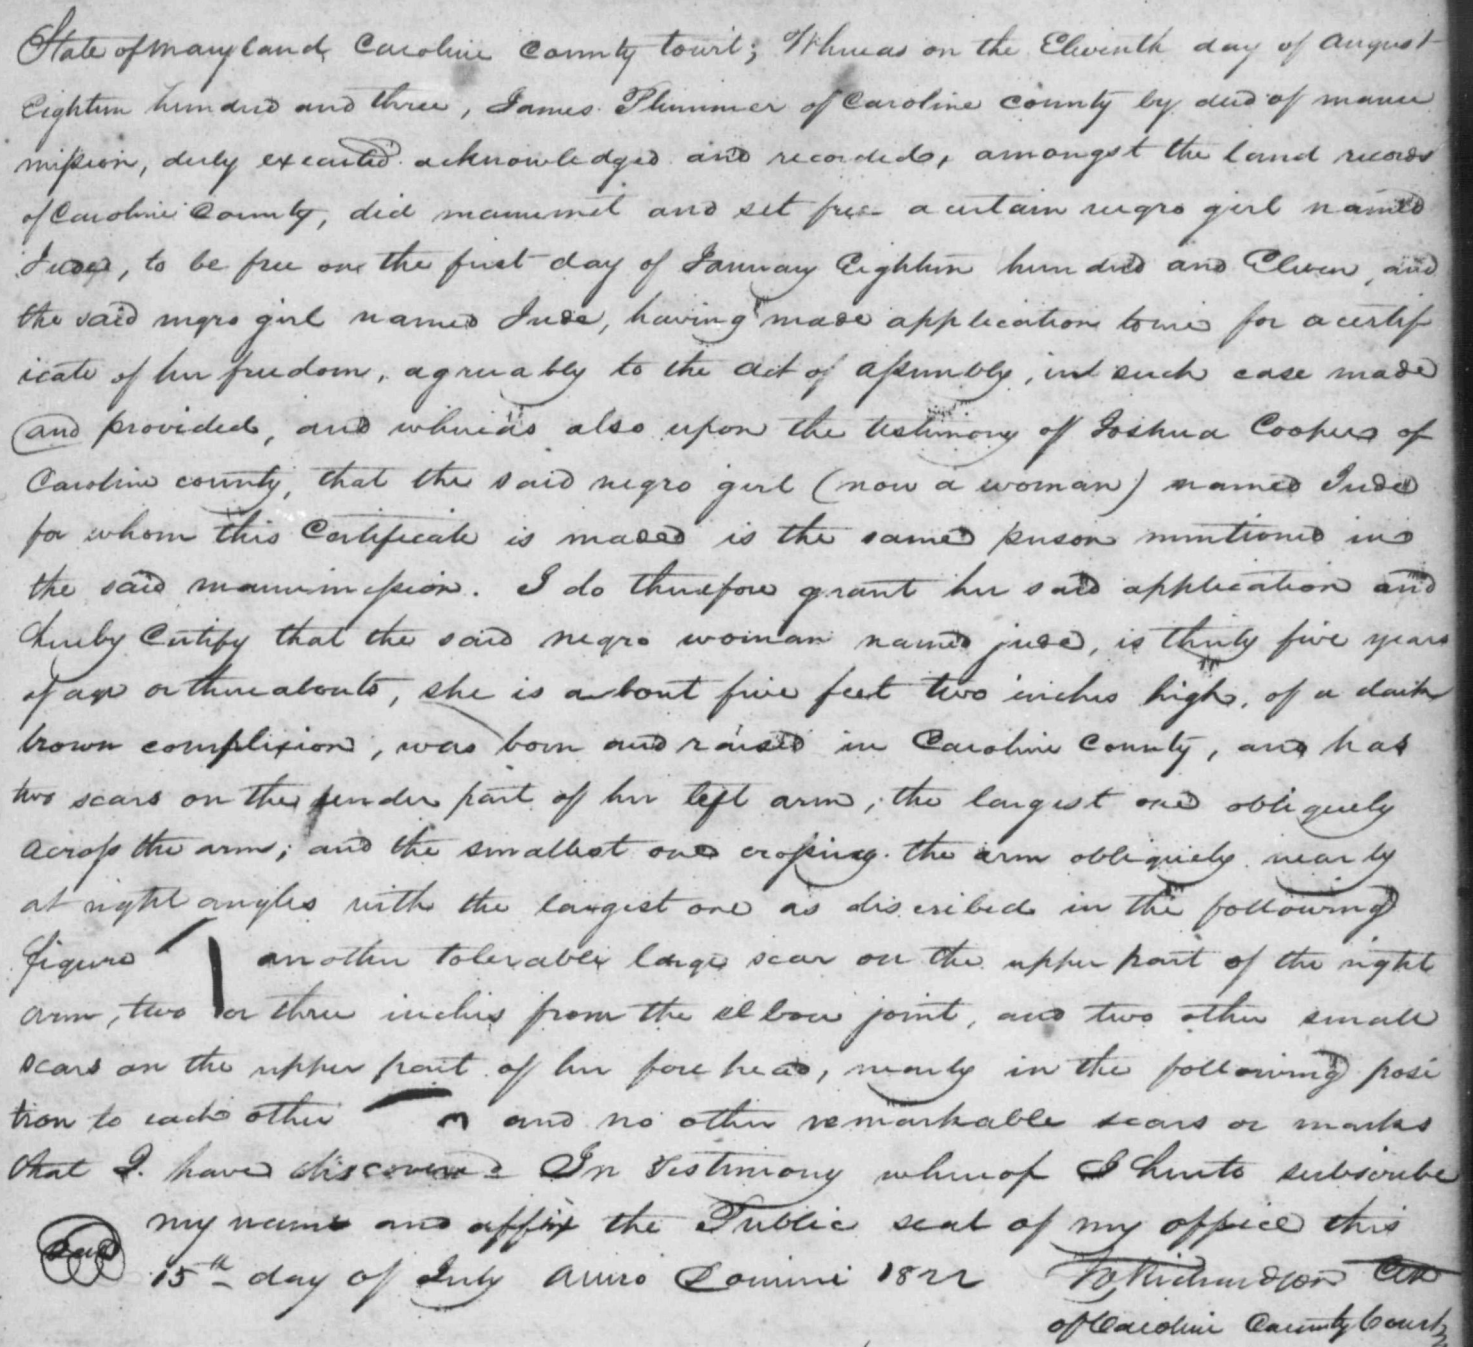 State of Maryland, Caroline County towit; Whereas on the Eleventh day of August
Eighteen hundred and three, James Plummer of Caroline county by deed of manu
mission, duly executed acknowledged and recorded, amongst the land records
of Caroline County, did manumit and set free a certain negro girl named
Jude, to be free on the first day of January Eighteen hundred and Eleven, and
the said negro girl named Jude, having made application to me for a certif
icate of her freedom, agreeably to the act of assembly, in such case made
and provided, and whereas also upon the testimony of Joshua Cooper of
Caroline county, that the said negro girl (now a woman) named Jude
for whom this Certificate is made is the same person mentioned in
the said manumission. I do therefore grant her said application and
hereby Certify that the said negro woman named jude, is thirty five years
of age or thereabouts, she is about five feet two inches high, of a dark
brown complixion, was born and raised in Caroline County, and has
two scars on the under part of her left arm, the largest one obliquely
across the arm; and the smallest one crossing the arm obliquely nearly
at right angles with the largest one as discribed in the following
figure another tolerable large scar on the upper part of the right
arm, two or three inches from the elbow joint, and two other small
scars on the upper part of her fore head, nearly in the following posi
tion to each other and no other remarkable scars or marks
that I have discovered In Testimony whereof I hereto subscribe
my name and affix the Public seal of my office this
Seal 15th day of July Anno Domini 1822 Richardson Clk
of Caroline County Court